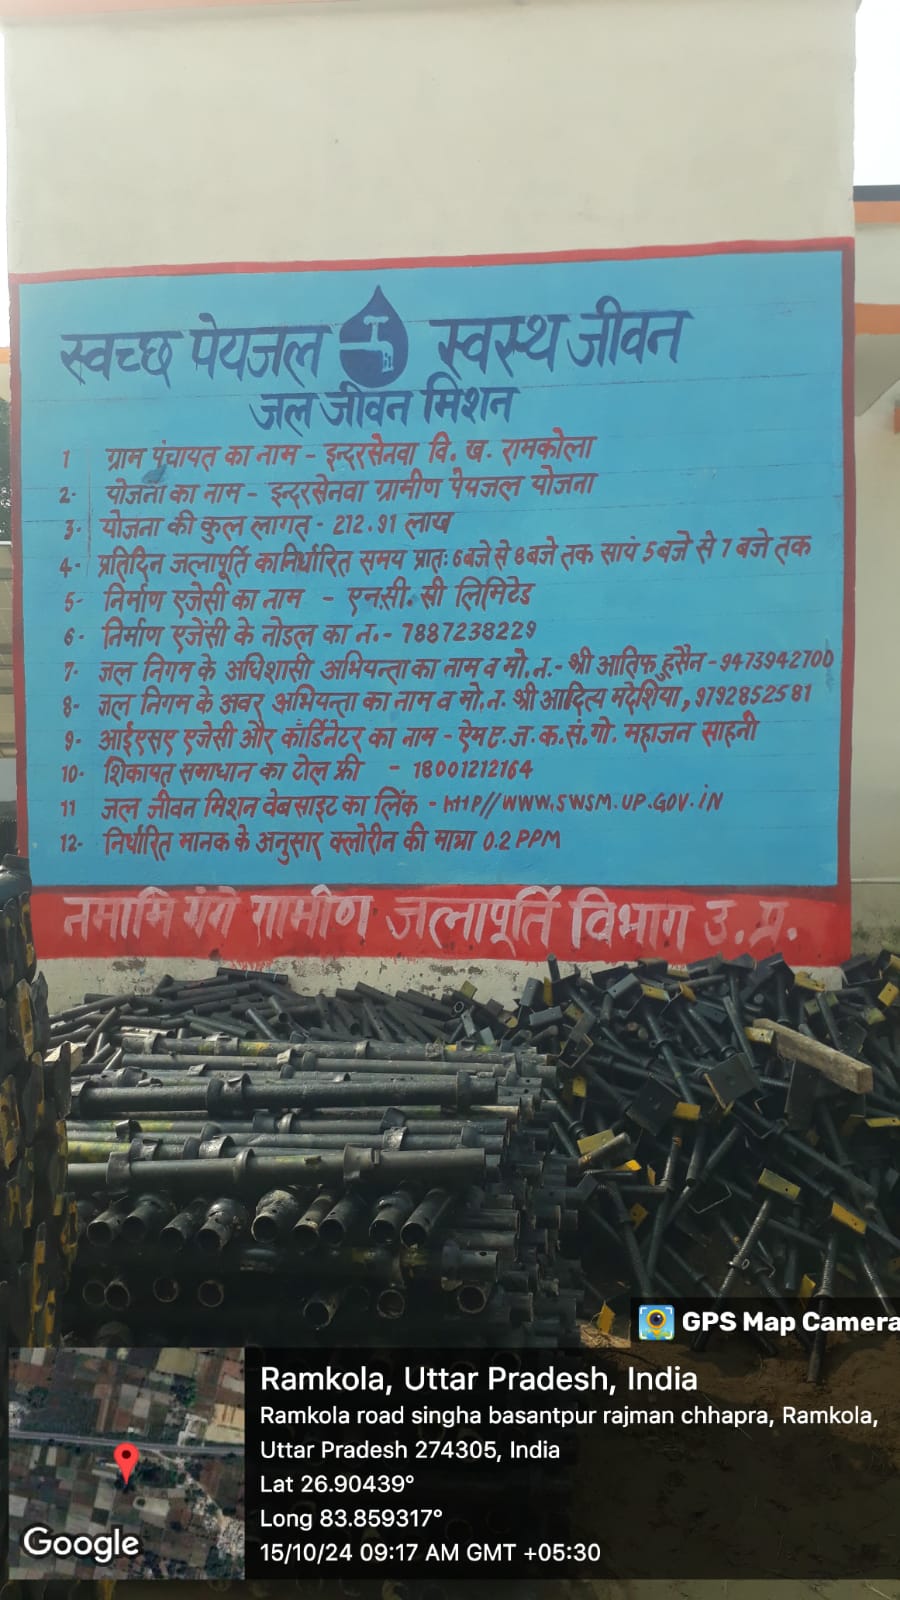 स्वच्छ पेयजल स्वस्थ जीवन
जल जीवन मिशन
1 ग्राम पंचायत का नाम - इन्दरसेनवा वि. ख. रामकोला
2- योजना का नाम - इन्दरसेनवा ग्रामीण पेयजल योजना
3- योजना की कुल लागत - 212.91 लाख
4- प्रतिदिन जलापूर्ति का निर्धारित समय प्रातः 6 बजे से 8 बजे तक सायं 5 बजे से 7 बजे तक
5- निर्माण एजेसी का नाम - एन.सी. सी लिमिटेड
6- निर्माण एजेंसी के नोडल का न.- 7887238229
7- जल निगम के अधिशासी अभियन्ता का नाम व मो. न.- श्री आतिफ हुसैन - 9473942700
8- जल निगम के अवर अभियन्ता का नाम व मो.न. श्री आदित्य मदेशिया, 9792852581
9- आईएसए एजेसी और कॉर्डिनेटर का नाम - ऐम.ए. ज. क. सं. गो. महाजन साहनी
10- शिकायत समाधान का टोल फ्री - 18001212164
11 जल जीवन मिशन वेबसाइट का लिंक - HTTP//WWW.SWSM.UP.GOV.iN
12- निर्धारित मानक के अनुसार क्लोरीन की मात्रा 0.2 PPM
नमामि गंगे ग्रामीण जलापूर्ति विभाग उ. प्र.
GPS Map Camera
Ramkola, Uttar Pradesh, India
Ramkola road singha basantpur rajman chhapra, Ramkola,
Uttar Pradesh 274305, India
Lat 26.90439°
Long 83.859317°
15/10/24 09:17 AM GMT +05:30
Google